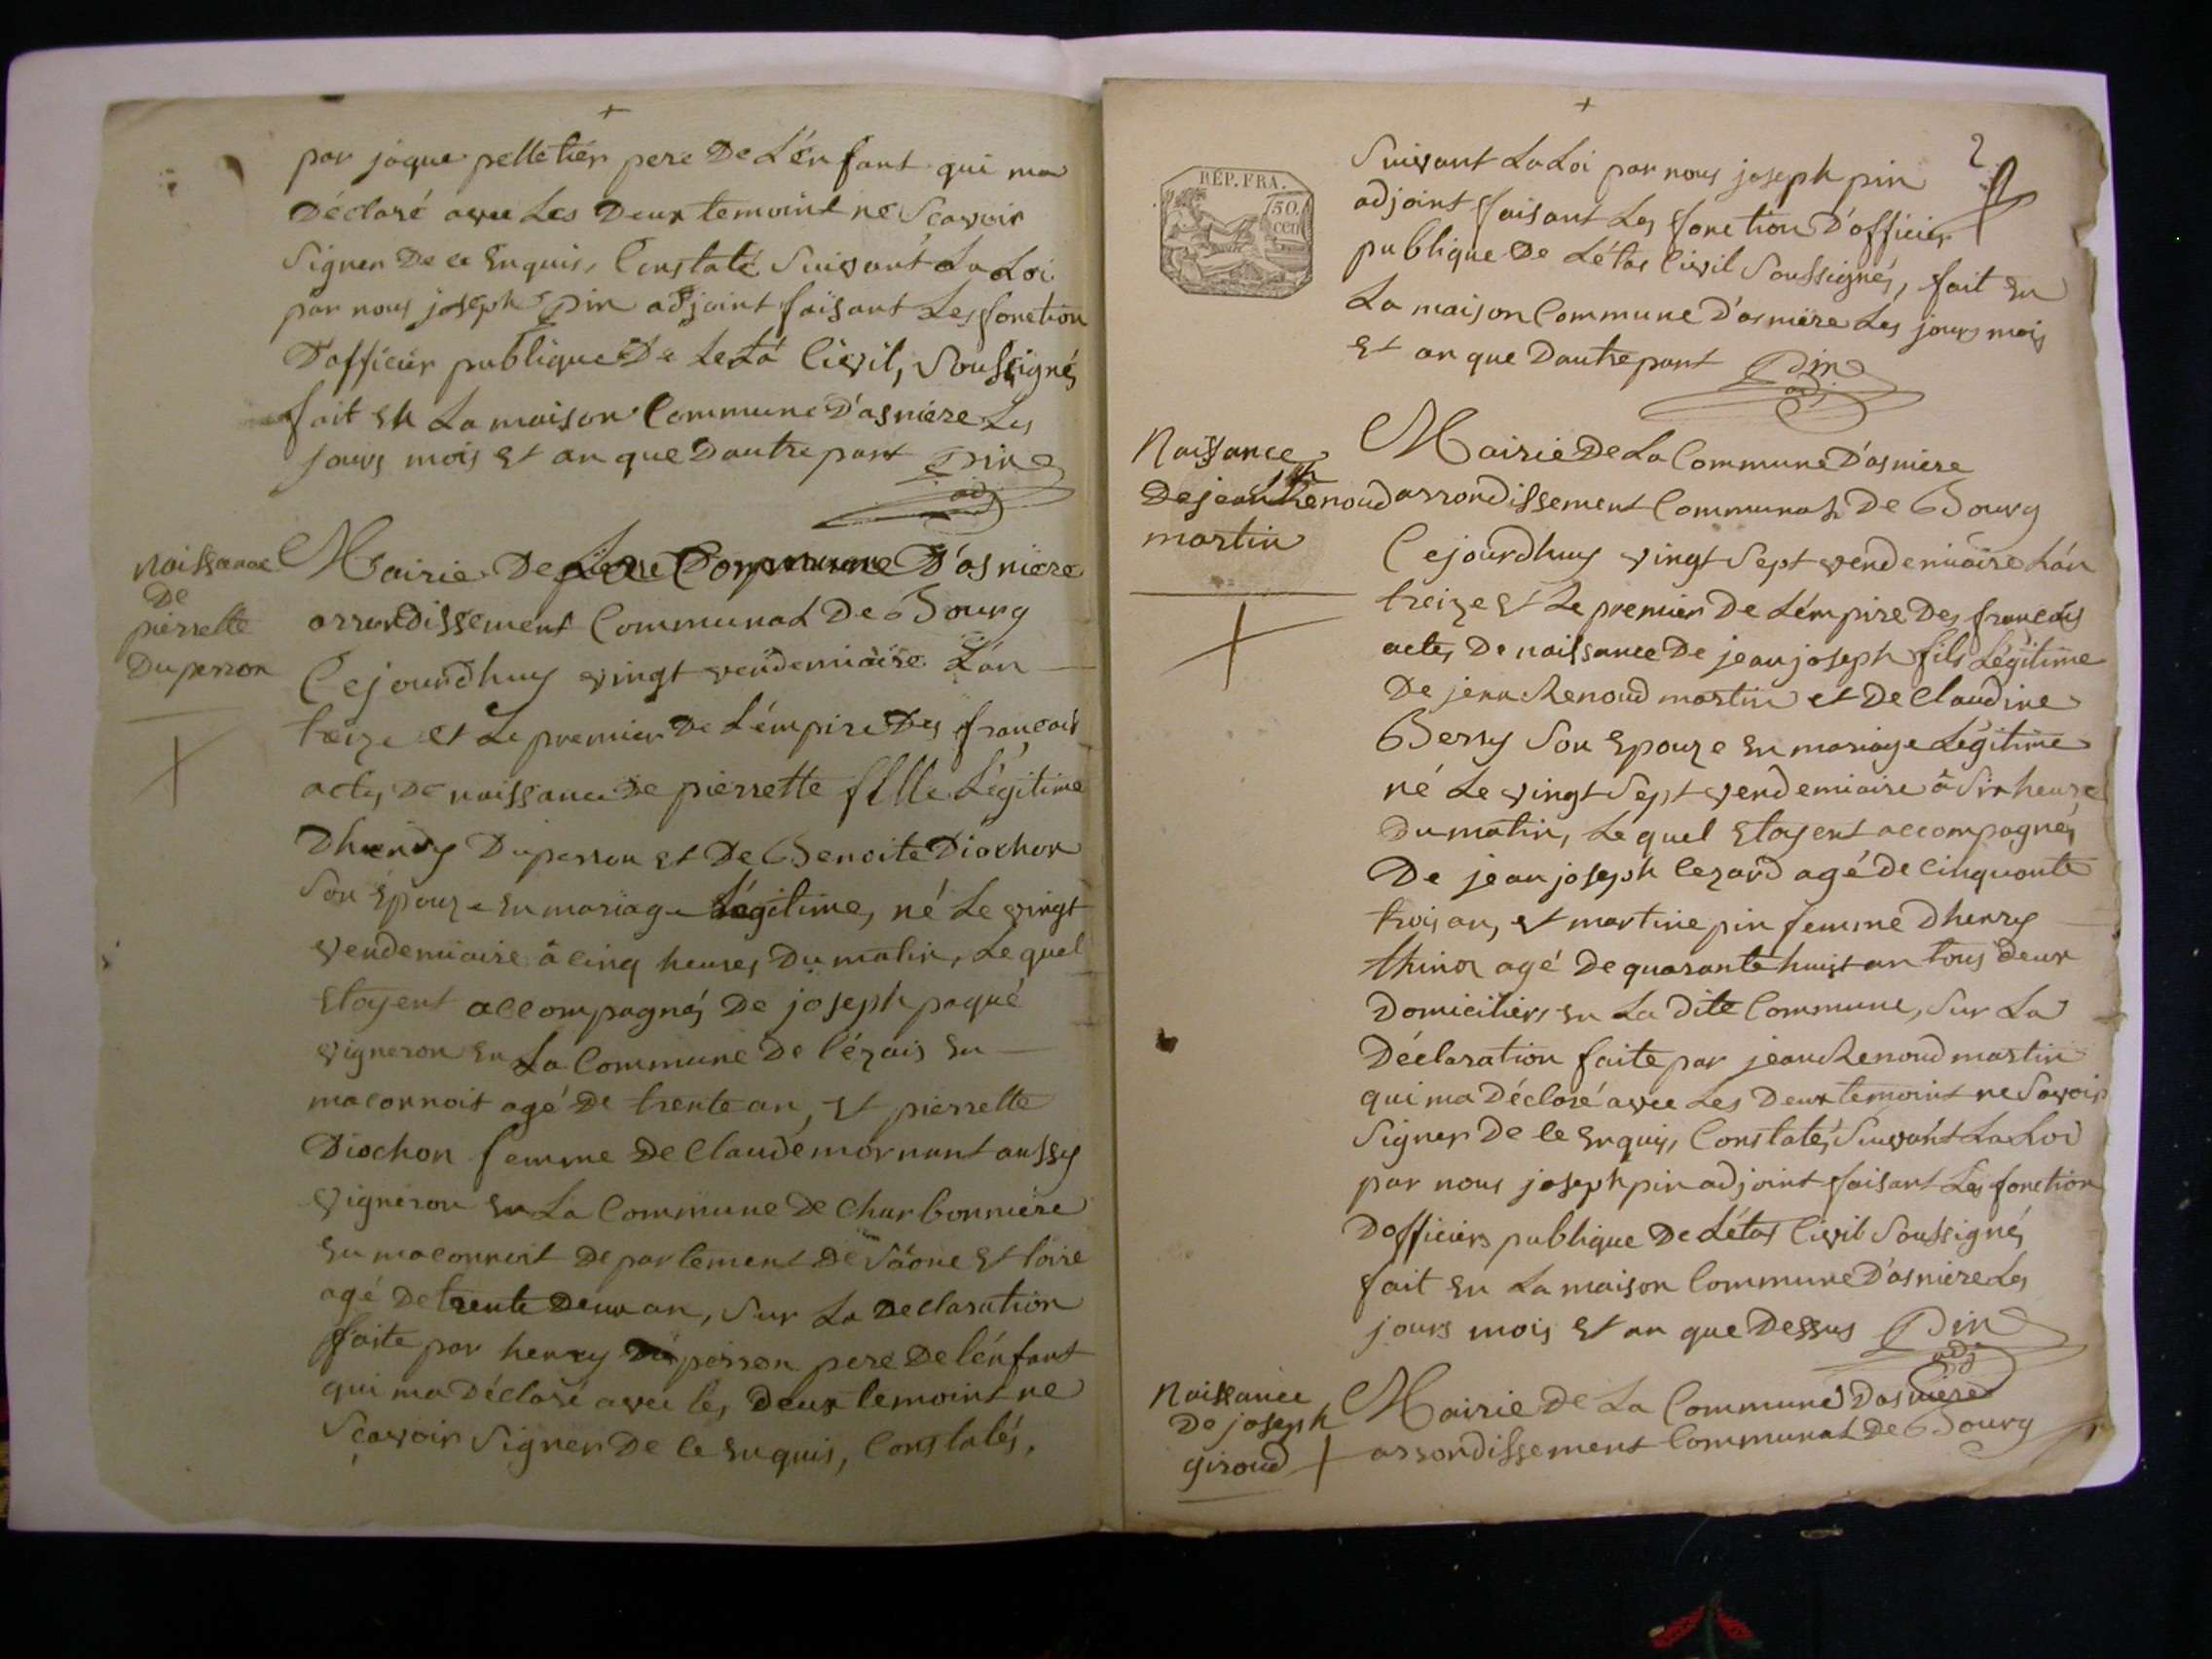 par jaque pelletier pere De L'énfant qui ma
Déclaré avec Les Deux temoint ne Scavoir
Signer De ce Enquis, Constaté Suivant La Loi
par nous joseph pin adjoint faisant Les fonction
D'officier publique De Letà Civil, Soussignés
fait En La maison Commune D'asniere Les
jours mois Et an que Dautre part Pin
adj
naissance
De
pierrette
Duperron
Mairie De La Commune D'asniere
arrondissement Communal De Bourg
Cejourdhuy vingt vendemiaire L'an
treize et Le premier De L'émpire Des francais
acte, De naissance De pierrette fille Légitime
Dhenry Duperron et De Benoite Diochon
Son Épouze En mariage Légitime, né Le vingt
vendemiaire à cinq heures Du matin, Le quel
Etoyent accompagnés De joseph paqué
vigneron En La Commune De Cézais En
maconnoit agé De trente an, Et pierrette
Diochon femme De Claude mornant aussy
vigneron En La Commune De Charbonniere
En maconnoit Departement De Sâone Et loire
agé De trente Deux an, Sur La Declaration
faite par henry Duperron pere De l'énfant
qui ma Déclaré avec les Deux temoint ne
Scavoir Signer De Ce Enquis, Constatés,
2
RÉP. FRA.
50.
cen
Suivant La Loi par nous joseph pin
adjoint faisant Les fonction D'officier
publique De L'étas Civil Soussignés, fait En
La maison Commune D'asniere Les jours mois
Et an que Dautre part Pin
adj
Naissance
De jean Renoud
martin
Mairie De La Commune D'asniere
arrondissement Communal De Bourg
Cejourdhuy vingt Sept vendemiaire L'an
treize Et Le premier De L'émpire Des francais
acte, De naissance De jean joseph fils Légitime
De jean Renoud martin et De Claudine
Berry Son Epouze En mariage Légitime
né Le vingt Sept vendemiaire à Six heures
Du matin, Le quel Etoyent accompagnés
De jean joseph Cezard agé de Cinquante
trois an, et martine pin femme Dhenry
thinon agé De quarante huist an tous Deux
Domiciliers En La Dite Commune, Sur La
Déclaration faite par jean Renoud martin
qui ma Déclaré avec Les Deux temoint ne Savoir
Signer De Ce Enquis, Constatés, Suivant La Loi
par nous joseph pin adjoint faisant Les fonction
Dofficiers publique De L'étas Civil Soussignés
fait En La maison Commune D'asniere Les
jours mois Et an que Dessus Pin
adj
Naissance
De joseph
giroud
Mairie De La Commune Dasniere
arrondissement Communal De Bourg